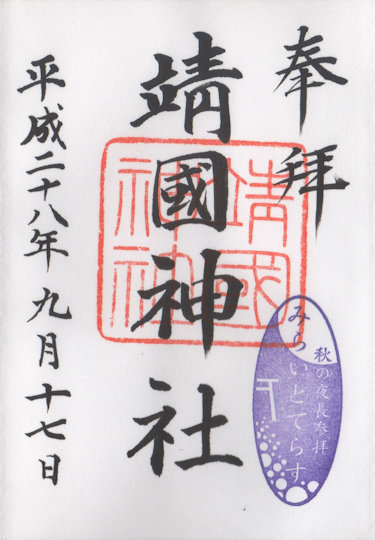 奉拝
靖國神社
靖國神社
平成二十八年九月十七日
秋の夜長参拝
みらいとてらす